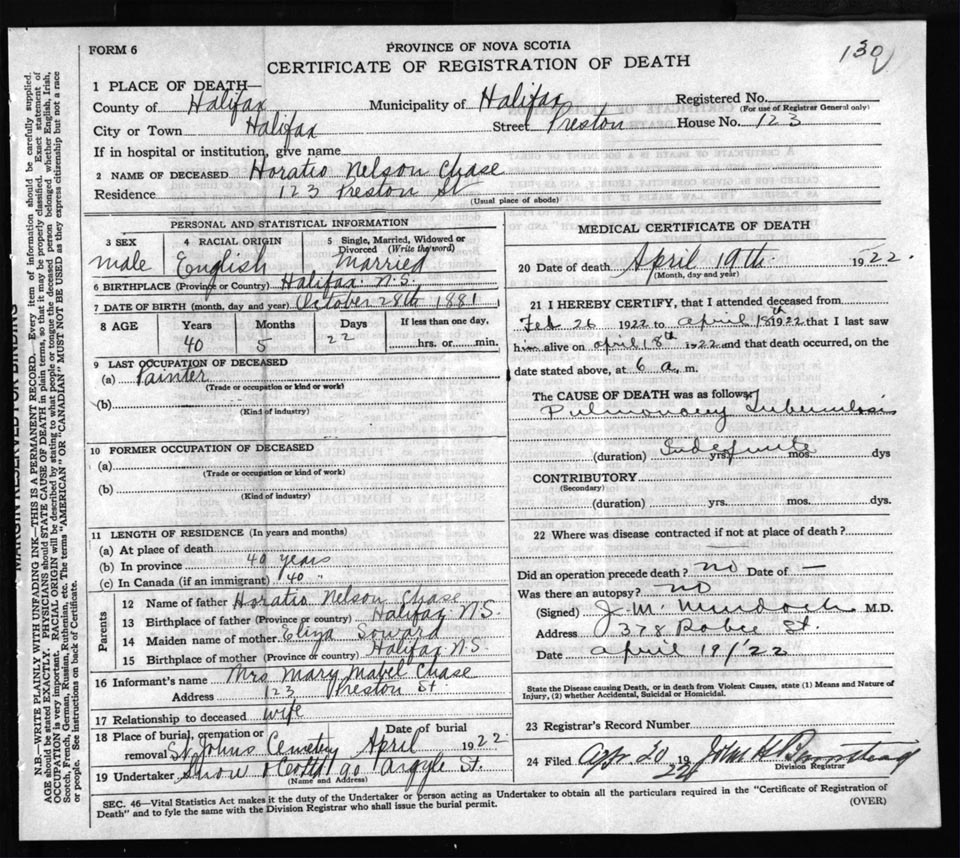 130
FORM 6
PROVINCE OF NOVA SCOTIA
CERTIFICATE OF REGISTRATION OF DEATH
1 PLACE OF DEATH—
County of Halifax Municipality of Halifax Registered No.
(For use of Registrar General only)
City or Town Halifax Street Preston House No. 123
If in hospital or institution, give name
2 NAME OF DECEASED Horatio Nelson Chase
Residence 123 Preston St
(Usual place of abode)
PERSONAL AND STATISTICAL INFORMATION
3 SEX 4 RACIAL ORIGIN 5 Single, Married, Widowed or
Divorced (Write the word)
male English Married
6 BIRTHPLACE (Province or Country) Halifax N.S.
7 DATE OF BIRTH (month, day and year) October 28th 1881
8 AGE Years Months Days If less than one day,
40 5 22 hrs. or min.
9 LAST OCCUPATION OF DECEASED
(a) Painter
(Trade or occupation or kind or work)
(b)
(Kind of industry)
10 FORMER OCCUPATION OF DECEASED
(a)
(Trade or occupation or kind of work)
(b)
(Kind of industry)
11 LENGTH OF RESIDENCE (In years and months)
(a) At place of death
(b) In province 40 years
(c) In Canada (if an immigrant) 40 "
Parents
12 Name of father Horatio Nelson Chase
13 Birthplace of father (Province or country) Halifax N.S.
14 Maiden name of mother Eliza Soward
15 Birthplace of mother (Province or country) Halifax N.S.
16 Informant's name Mrs Mary Mabel Chase
Address 123 Preston St.
17 Relationship to deceased wife
18 Place of burial, cremation or Date of burial
removal St Johns Cemetery April 1922
19 Undertaker Snow & 90 Argyle St.
(Name and Address)
MEDICAL CERTIFICATE OF DEATH
20 Date of death April 19th 1922.
(Month, day and year)
21 I HEREBY CERTIFY, that I attended deceased from
Feb 26 1922 to april 18th 1922 that I last saw
him alive on april 18th 1922 and that death occurred, on the
date stated above, at 6 a. m.
The CAUSE OF DEATH was as follows:
Pulmonary Tuberculosis
(duration) Indefinite yrs. mos. dys
CONTRIBUTORY
(Secondary)
(duration) yrs. mos. dys.
22 Where was disease contracted if not at place of death?
Did an operation precede death? no Date of —
Was there an autopsy? no
(Signed) J. M. Murdoch M.D.
Address 378 Robie St.
Date april 19/22
State the Disease causing Death, or in death from Violent Causes, state (1) Means and Nature of
Injury, (2) whether Accidental, Suicidal or Homicidal.
23 Registrar's Record Number
24 Filed Apr 20 19 22 John
Division Registrar
SEC. 46—Vital Statistics Act makes it the duty of the Undertaker or person acting as Undertaker to obtain all the particulars required in the "Certificate of Registration of
Death" and to fyle the same with the Division Registrar who shall issue the burial permit.
(OVER)
MARGIN RESERVED FOR BINDING
N.B.—WRITE PLAINLY WITH UNFADING INK—THIS IS A PERMANENT RECORD. Every item of information should be carefully supplied.
AGE should be stated EXACTLY. PHYSICIANS should STATE CAUSE OF DEATH in plain terms, so that it may be properly classified. Exact statement of
OCCUPATION is very important. RACIAL ORIGIN will be described by stating to what people or tongue the deceased person belonged whether English, Irish,
Scotch, French, German, Russian, Ruthenian, etc. The terms "AMERICAN" OR "CANADIAN" MUST NOT BE USED as they express citizenship but not a race
or people. See instructions on back of Certificate.